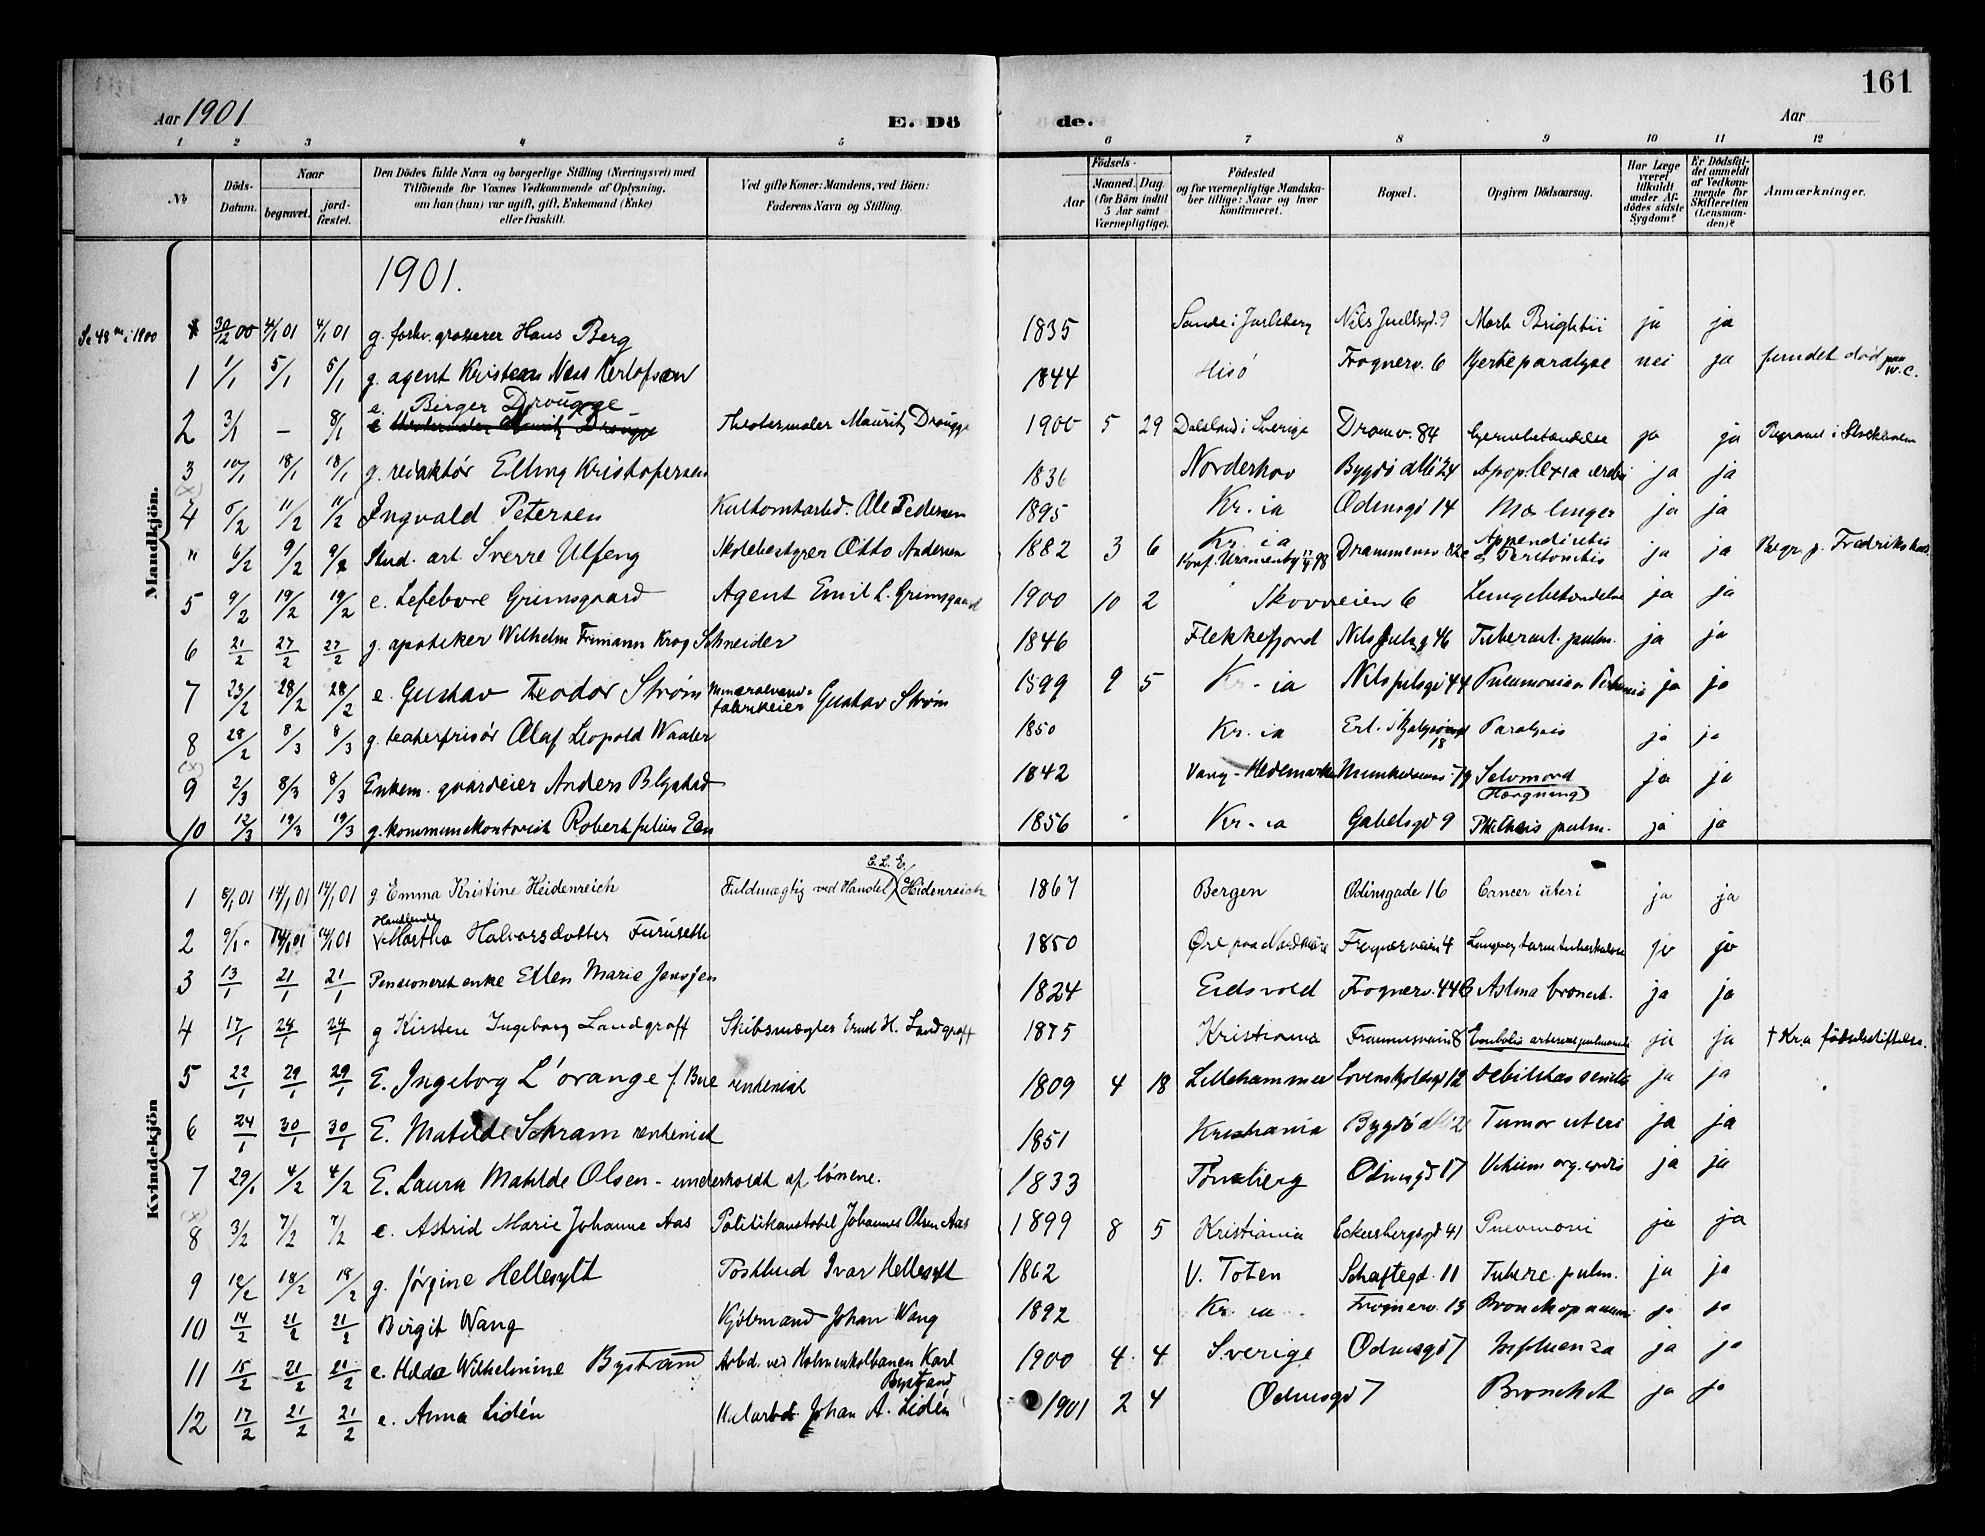 161
Aar 1901 E. Dö de. Aar
1 2 3 4 5 6 7 8 9 10 11 12
No
Döds-Datum.
Naar
begravet.
jord-fæstet.
Den Dödes fulde Navn og borgerlige Stilling (Næringsvei) med
Tilföiende for Voxnes Vedkommende af Oplysning,
om han (hun) var ugift, gift, Enkemand (Enke)
eller fraskilt.
Ved gifte Koner: Mandens, ved Börn:
Faderens Navn og Stilling.
Födsels-
Aar
Maaned. Dag.
(for Börn indtil
5 Aar samt
Værnepligtige).
Födested
og for værnepligtige Mandska-
ber tillige: Naar og hvor
konfirmeret.
Bopæl.
Opgiven Dödsaarsag.
Har Læge
været
tilkaldt
under Af-
dödes sidste
Sygdom?
Er Dödsfal-
det anmeldt
af Vedkom-
mende for
Skifteretten
(Lensman-
den)?
Anmærkninger.
Mandkjön.
1901.
Se 48 i 1900 30/12 00 4/1 01 4/1 01 g. forhv. grosserer Hans Berg 1835 Sande i Jarlsberg Nils Juelsgd. 9 Morb. Brightii ja ja
1 1/1 5/1 5/1 g. agent Kristen Næss Kerlofsen 1844 Hisö Frognerv. 6 Hjerteparalyse nei ja fundet död paa W.C.
2 3/1 - 8/1 e. Birger Drougge Theatermaler Mauritz Drougge 1900 5 29 Dalsland i Sverige Dramv. 84 Hjernebetændelse ja ja Begravet i Stockholm
3 10/1 18/1 18/1 g. redaktör Elling Kristofersen 1836 Norderhov Bygdö allé 24 Apoplexia cerebri ja ja
4 5/2 11/2 11/2 Ingvald Petersen Kultomtarbd. Ole Pedersen 1895 Kr.ia Odinsgd 14 Mæslinger ja ja
" 6/2 9/2 9/2 Stud. art Sverre Ulfeng Skolebestyrer Otto Andersen 1882 3 6 Kr.ia Konf. Uranienborg Drammensv. 82c Appendicitis og Peritonitis ja ja Begr. p. Fredrikshald
5 9/2 19/2 19/2 e. Lefebvre Grimsgaard Agent Emil L. Grimsgaard 1900 10 2 Skovveien 6 Lungebetændelse ja ja
6 21/2 27/2 27/2 g. apoteker Wilhelm Frimann Krog Schneider 1846 Flekkefjord Nils Julsg 46 Tubercul. pulm. ja ja
7 23/2 28/2 28/2 e. Gustav Theodor Ström Mineralvand-fabrikeier Gustav Ström 1899 9 5 Kr.ia Nils Julsgd 44 Pneumonia ja ja
8 28/2 8/3 8/3 g. teaterfrisör Olaf Leopold Waaler 1850 Kr.ia 18 Paralysis ja ja
9 2/3 8/3 8/3 Enkem. gaardeier Anders Blystad 1842 Vang - Hedemarken Munkedamsv. 79 Selvmord (Hængning) ja ja
10 12/3 19/3 19/3 g. kommunekontorist Robert Julius 1856 Kr.ia Gabelsgd 9 Phthisis pulm. ja ja
Kvindekjön
1 8/1 01 14/1 01 14/1 01 g Emma Kristine Heidenreich Fuldmægtig ved Handel E.L.E. Heidenreich 1867 Bergen Odinsgade 16 Cancer uteri ja ja
2 9/1 14/1 01 14/1 01 Handlende Martha Halvorsdotter Furuseth 1850 Öre paa Nordmöre Frognerveien 4 Lunge og tarmtuberkulose ja ja
3 13/1 21/1 21/1 Pensioneret enke Ellen Marie Jensen 1824 Eidsvold Frognerv. 44B Astma bronch. ja ja
4 17/1 24/1 24/1 g Kirsten Ingeborg Landgraff Skibsmægler Ernst H. Landgraff 1875 Kristiania 8 Embolia arteriae pulmonalis ja ja † Kr.a födselsstiftelse.
5 22/1 29/1 29/1 E. Ingeborg L'orange f. rentenist 1809 4 18 Lillehammer Lovenskjoldsgd 12 debilitas senilis ja ja
6 24/1 30/1 30/1 E. Matilde Schram rentenist 1851 Kristiania Bygdö allé 2 Tumor uteri ja ja
7 29/1 4/2 4/2 E. Laura Matilde Olsen - underholdt af sönene. 1833 Tönsberg Odinsgd 17 Vitium org. cordis ja ja
8 3/2 7/2 7/2 e. Astrid Marie Johanne Aas Politikonstabel Johannes Olsen Aas 1899 8 5 Kristiania Eckersbergsgd 41 Pneumoni ja ja
9 12/2 18/2 18/2 g. Jörgine Hellesylt Postbud Ivar Hellesylt 1862 V. Toten Schaftegd. 11 Tuberc. pulm. ja ja
10 14/2 21/2 21/2 Birgit Wang Kjöbmand Johan Wang 1892 Kr.ia Frognerv. 13 Bronchopneumoni ja ja
11 15/2 21/2 21/2 e. Hilda Wilhelmine Byström Arbd. ved Holmenkolbanen Karl 1900 4 4 Sverige Odinsgd 7 Influenza ja ja
12 17/2 21/2 21/2 e. Anna Lidén Johan A. Lidén 1901 2 4 Odinsgd 7 Bronchit ja ja